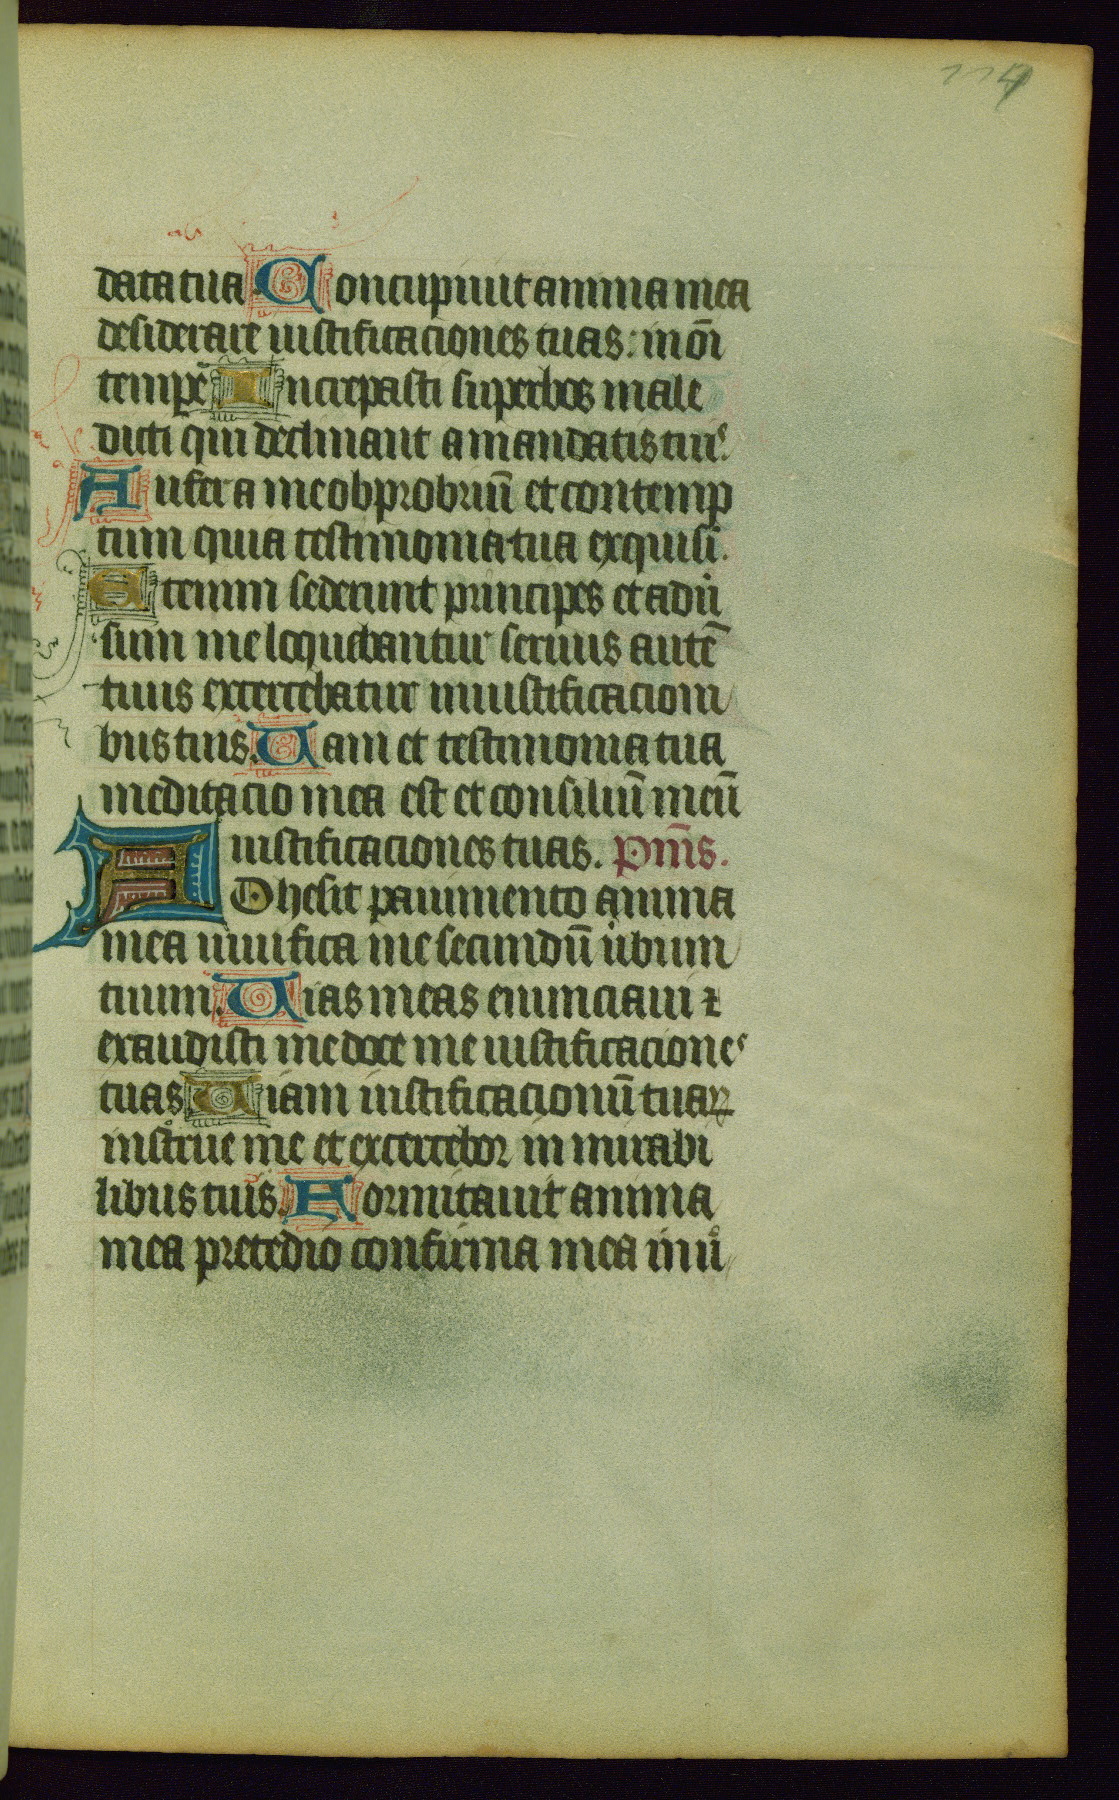 114
data tua Concupiuit anima mea
desiderare iustificaciones tuas: in oī
tempe Increpasti superbos male
dicti qui declinant a mandatis tuis.
Aufer a me obprobriū et contemp
tum quia testimonia tua exquisi.
Etenim sederunt principes et adũ
sum me loquebantur seruus autē
tuus excercebatur in iustificacioni
bus tuis. Nam et testimonia tua
meditacio mea est et consiliū meū
iustificaciones tuas. pm̄s.
ADhesit pauimento anima
mea uiuifica me secundū ũbum
tuum. Uias meas enunciaui ⁊
exaudisti me doce me iustificaciones
tuas Uiam iustificacionū tuaꝝ
instrue me et excercebor in mirabi
libus tuis. Dormitauit anima
mea pre tedio confirma mea in ũ